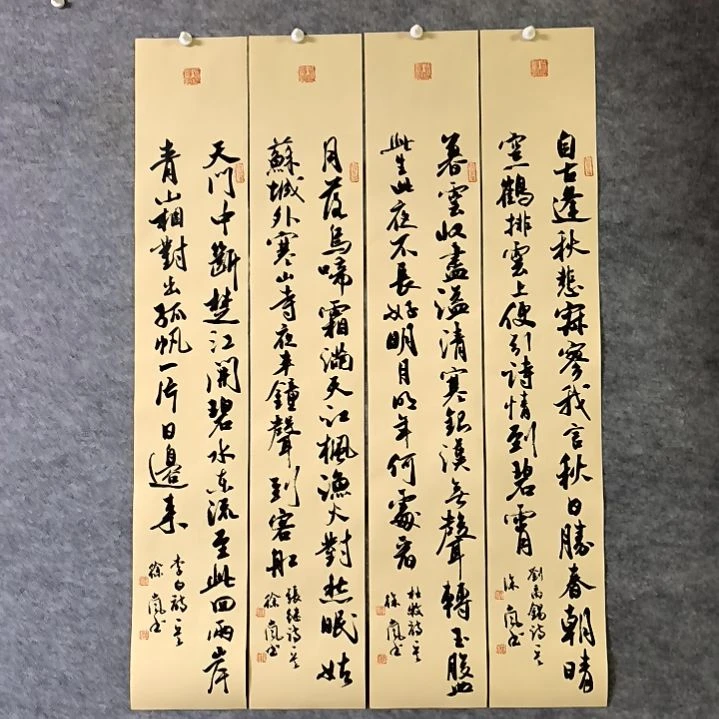 自古逢秋悲寂寥我言秋日勝春朝晴
空一鶴排雲上便引詩情到碧霄
劉禹錫詩一首
徐嵐書
暮雲收盡溢清寒銀漢無聲轉玉盤
此生此夜不長好明月明年何處看
杜牧詩一首
徐嵐書
月落烏啼霜滿天江楓漁火對愁眠姑
蘇城外寒山寺夜半鐘聲到客船
張繼詩一首
徐嵐書
天門中斷楚江開碧水東流至此回兩岸
青山相對出孤帆一片日邊來
李白詩一首
徐嵐書